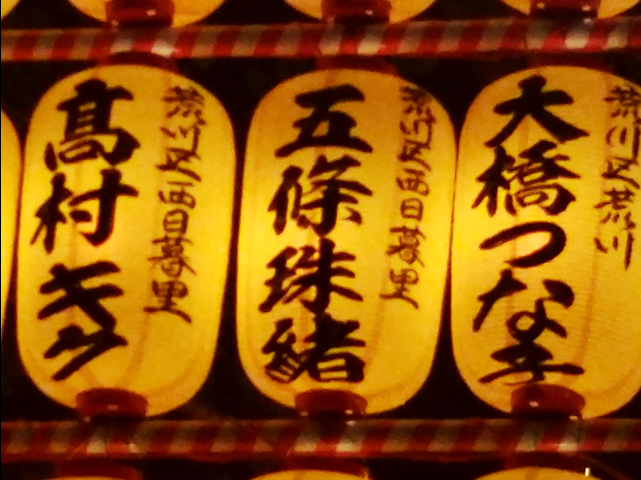 荒川区荒川
大橋つな子
荒川区西日暮里
五條珠緒
荒川区西日暮里
髙村キク